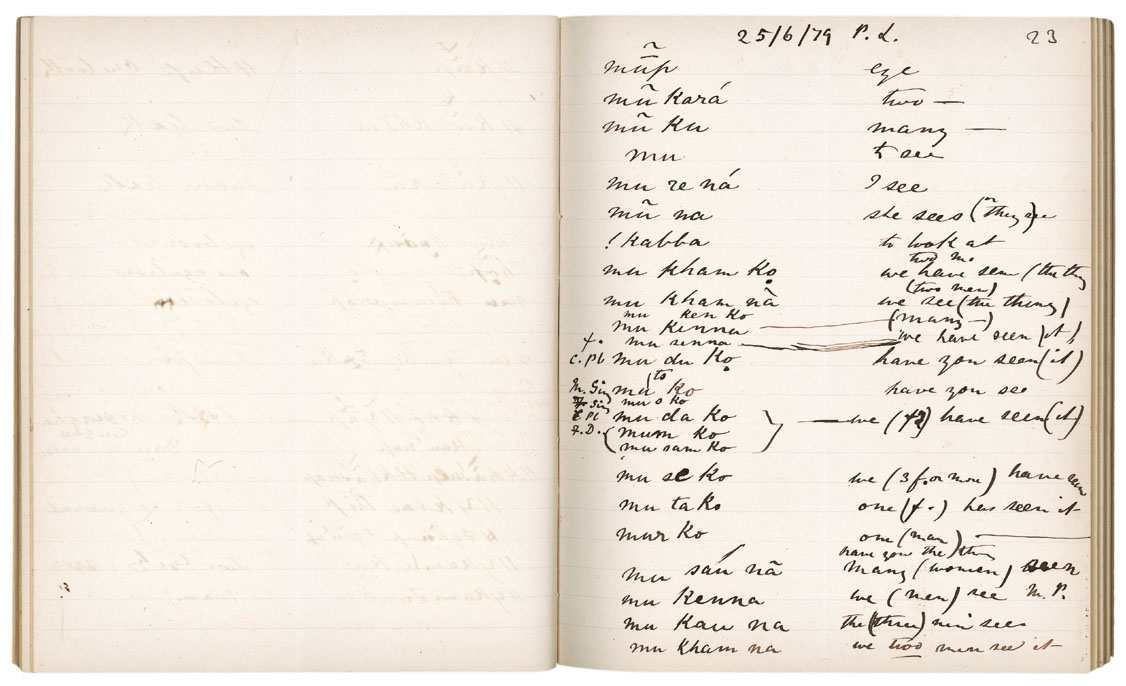 25/6/79 P. L. 23
mũ̱p eye
mũ kará two —
mũ ku many —
mu to see
mu re ná I see
mũ na she sees (or they) see
! kabba to look at
two m.
mu kham ko̤ we have seen (the thg
(two men)
mu kham nã we see (the thing)
mu ken ko
mu kenna (many —)
f. mu senna we have seen (it)
C. Pl mu du ko̤ have you seen (it)
to
M. Sin mu ko have you see
F. Sin mu o ko
C Pl mu da ko — we (f2) have seen (it)
f. D. (mum ko
(mu sam ko
mu se ko we (3 f. or more) have seen
mu ta ko one (f.) has seen it
mur ko one (man)
have you the
mu sáu nã many (women) seen
mu kenna we (men) see M. P.
mu kau na the (three) men sees
mu kham na we two men see it